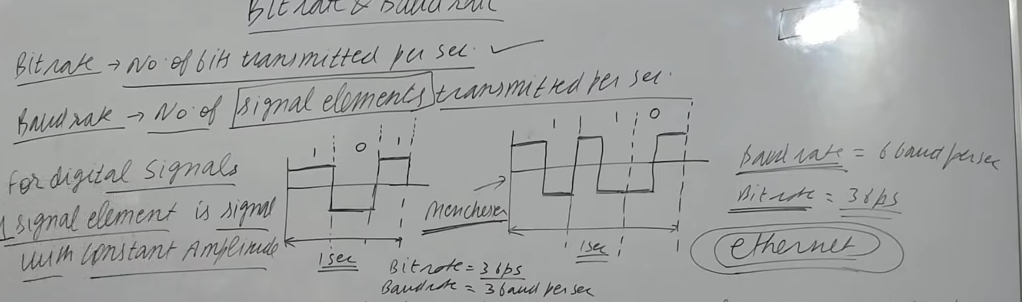 Bitrate & Baud rate
Bitrate → No. of bits transmitted per sec.
Baud rate → No of signal elements transmitted per sec.
For digital signals
1 signal element is signal
with constant Amplitude
1 0 1
1sec
Bitrate = 3 bps
Baud rate = 3 baud per sec
Mencheser
1 1 0
1sec
Baud rate = 6 baud per sec
Bitrate = 3 bps
ethernet